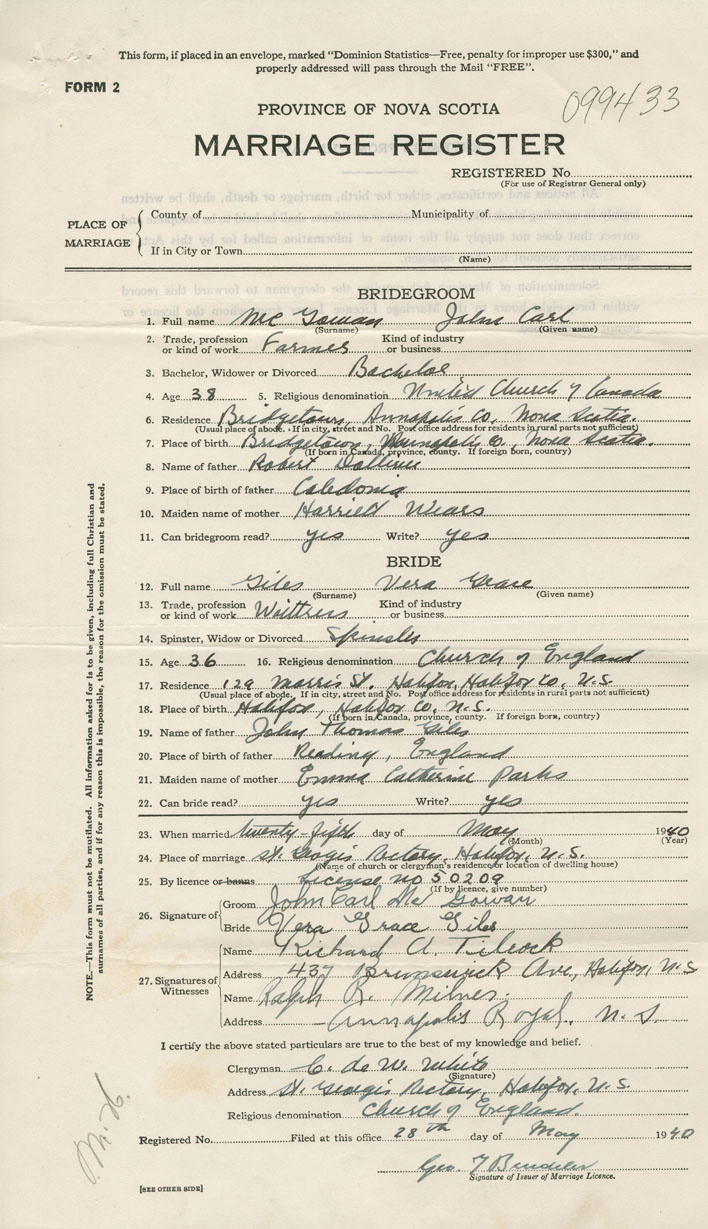 This form, if placed in an envelope, marked "Dominion Statistics—Free, penalty for improper use $300," and
properly addressed will pass through the Mail "FREE".
FORM 2
099433
PROVINCE OF NOVA SCOTIA
MARRIAGE REGISTER
REGISTERED No.
(For use of Registrar General only)
PLACE OF MARRIAGE
County of Municipality of
If in City or Town
(Name)
BRIDEGROOM
1. Full name McGowan John Carl
(Surname) (Given name)
2. Trade, profession or kind of work Farmer Kind of industry or business
3. Bachelor, Widower or Divorced Bachelor
4. Age 38 5. Religious denomination United Church of Canada
6. Residence Bridgetown, Annapolis Co, Nova Scotia.
(Usual place of abode. If in city, street and No. Post office address for residents in rural parts not sufficient)
7. Place of birth Bridgetown, Annapolis Co, Nova Scotia.
(If born in Canada, province, county. If foreign born, country)
8. Name of father Robert
9. Place of birth of father Caledonia
10. Maiden name of mother Harriett Wears
11. Can bridegroom read? yes Write? yes
BRIDE
12. Full name Giles Vera Grace
(Surname) (Given name)
13. Trade, profession or kind of work Waitress Kind of industry or business
14. Spinster, Widow or Divorced Spinster
15. Age 36 16. Religious denomination Church of England
17. Residence 129 Morris St. Halifax, Halifax Co, N.S.
(Usual place of abode. If in city, street and No. Post office address for residents in rural parts not sufficient)
18. Place of birth Halifax, Halifax Co, N.S.
(If born in Canada, province, county. If foreign born, country)
19. Name of father John Thomas Giles
20. Place of birth of father Reading, England
21. Maiden name of mother Emma Catherine Parks
22. Can bride read? yes Write? yes
23. When married twenty-fifth day of May 1940
(Month) (Year)
24. Place of marriage St. George's Rectory, Halifax, N.S.
(Name of church or clergyman's residence or location of dwelling house)
25. By licence or banns License no 50209
(If by licence, give number)
26. Signature of
Groom John Carl McGowan
Bride Vera Grace Giles
27. Signatures of Witnesses
Name Richard A. Tilcock
Address 437 Brunswick Ave, Halifax, N.S
Name Ralph R. Milner.
Address Annapolis Royal, N.S.
I certify the above stated particulars are true to the best of my knowledge and belief.
Clergyman C. de W. White
(Signature)
Address St. George's Rectory, Halifax, N.S.
Religious denomination Church of England.
Registered No. Filed at this office 28th day of May 1940
Geo.
Signature of Issuer of Marriage Licence.
[SEE OTHER SIDE]
NOTE.—This form must not be mutilated. All information asked for is to be given, including full Christian and
surnames of all parties, and if for any reason this is impossible, the reason for the omission must be stated.